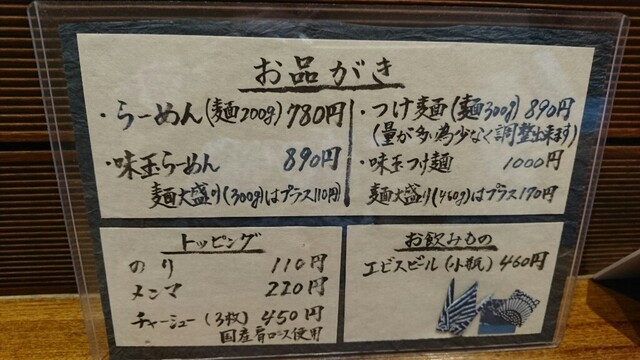 お品がき
・らーめん(麺200g)780円
・味玉らーめん 890円
麺大盛り(300g)はプラス110円
・つけ麺(麺300g)890円
(量が多い為少なく調整出来ます)
・味玉つけ麺 1000円
麺大盛り(450g)はプラス170円
トッピング
のり 110円
メンマ 220円
チャーシュー(3枚)450円
国産肩ロース使用
お飲みもの
エビスビール(小瓶)460円